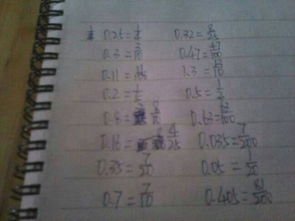 0.25=1/4 0.32=8/25
0.3=3/10 0.47=47/100
0.11=11/100 1.3=13/10
0.2=1/5 0.5=1/2
0.8= 0.63=63/100
0.16=4/25 0.035=7/200
0.35=7/20 0.05=1/20
0.7=7/10 0.405=81/200